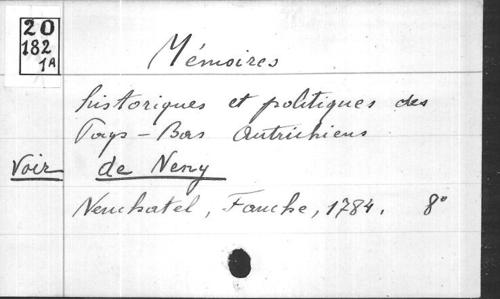 20
182
1A
Mémoires
historiques et politiques des
Pays-Bas Autrichiens
Voir de Neny
Neuchatel, Fauche, 1784. 8°